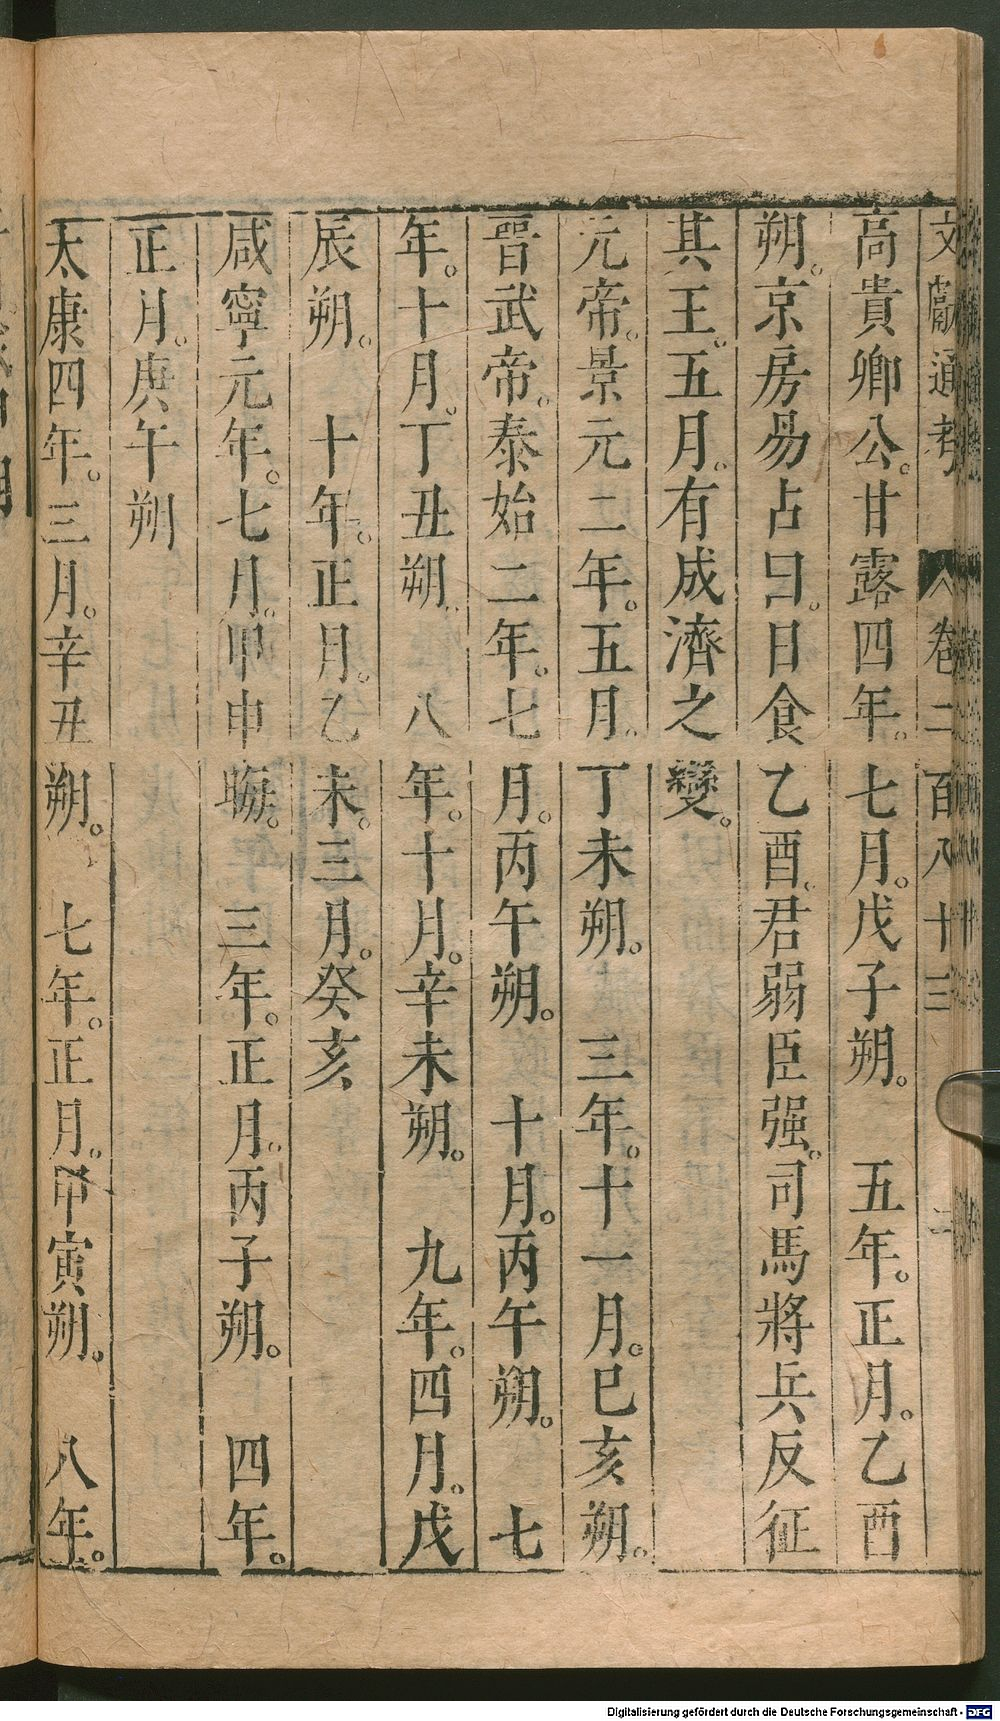 文獻通考 卷二百八十三 二
高貴卿公。甘露四年。七月。戊子朔。 五年。正月。乙酉
朔。京房易占曰。日食乙酉。君弱臣强。司馬將兵反征
其王。五月。有成濟之變。
元帝。景元二年。五月。丁未朔。 三年。十一月。巳亥朔。
晉武帝。泰始二年。七月。丙午朔。 十月。丙午朔。 七
年。十月。丁丑朔。 八年。十月。辛未朔。 九年。四月。戊
辰朔。 十年。正月。乙未。三月。癸亥
咸寧元年。七月。甲申晦。 三年。正月。丙子朔。 四年。
正月。庚午朔
太康四年。三月。辛丑朔。 七年。正月。甲寅朔。 八年。
Digitalisierung gefördert durch die Deutsche Forschungsgemeinschaft - DFG